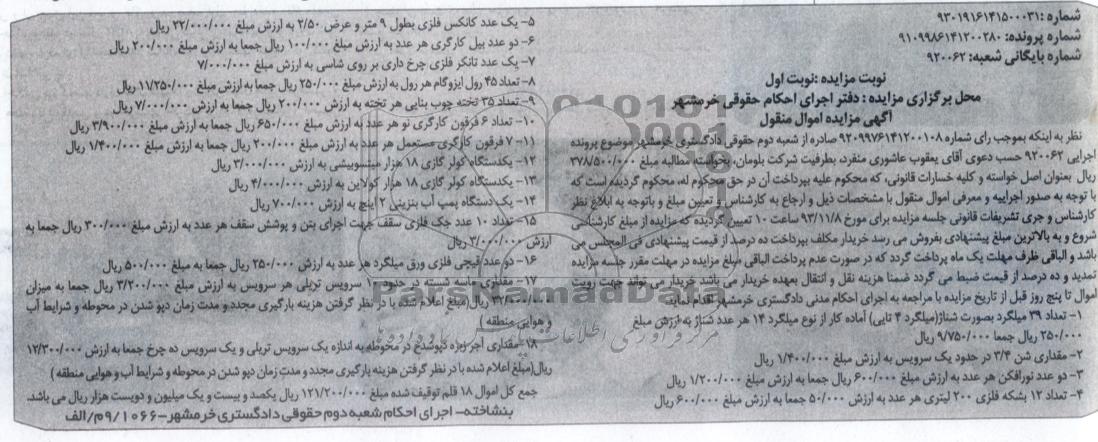 شماره :۹۳۰۱۹۱۶۱۴۱۵۰۰۰۳۱
شماره پرونده: ۹۱۰۹۹۸۶۱۴۱۲۰۰۲۸۰
شماره بایگانی شعبه: ۹۲۰۰۶۲
نوبت مزایده :نوبت اول
محل برگزاری مزایده : دفتر اجرای احکام حقوقی خرمشهر
آگهی مزایده اموال منقول
نظر به اینکه بموجب رای شماره ۹۲۰۹۹۷۶۱۴۱۲۰۰۱۰۸ صادره از شعبه دوم حقوقی دادگستری خرمشهر موضوع پرونده
اجرایی ۹۲۰۰۶۲ حسب دعوی آقای یعقوب عاشوری منفرد، بطرفیت شرکت بلومان، بخواسته مطالبه مبلغ ۳۷۸/۵۰۰/۰۰۰
ریال بعنوان اصل خواسته و کلیه خسارات قانونی، که محکوم علیه بپرداخت آن در حق محکوم له، محکوم گردیده است که
با توجه به صدور اجراییه و معرفی اموال منقول با مشخصات ذیل و ارجاع به کارشناس و تعیین مبلغ و باتوجه به ابلاغ نظر
کارشناس و جری تشریفات قانونی جلسه مزایده برای مورخ ۹۳/۱۱/۸ ساعت ۱۰ تعیین گردیده که مزایده از مبلغ کارشناسی
شروع و به بالاترین مبلغ پیشنهادی بفروش می رسد خریدار مکلف بپرداخت ده درصد از قیمت پیشنهادی فی المجلس می
باشد و الباقی ظرف مهلت یک ماه پرداخت گردد که در صورت عدم پرداخت الباقی مبلغ مزایده در مهلت مقرر جلسه مزایده
تمدید و ده درصد از قیمت ضبط می گردد ضمنا هزینه نقل و انتقال بعهده خریدار می باشد خریدار می تواند جهت رویت
اموال تا پنج روز قبل از تاریخ مزایده با مراجعه به اجرای احکام مدنی دادگستری خرمشهر اقدام نمایند
۱- تعداد ۳۹ میلگرد بصورت شناژ(میلگرد ۴ تایی) آماده کار از نوع میلگرد ۱۴ هر عدد شناژ به ارزش مبلغ
۲۵۰/۰۰۰ ریال جمعا ۹/۷۵۰/۰۰۰ ریال
۲- مقداری شن ۳/۴ در حدود یک سرویس به ارزش مبلغ ۱/۴۰۰/۰۰۰ ریال
۳- دو عدد نورافکن هر عدد به ارزش مبلغ ۶۰۰/۰۰۰ ریال جمعا به ارزش مبلغ ۱/۲۰۰/۰۰۰ ریال
۴- تعداد ۱۲ بشکه فلزی ۲۰۰ لیتری هر عدد به ارزش ۵۰/۰۰۰ جمعا به ارزش مبلغ ۶۰۰/۰۰۰ ریال
۵- یک عدد کانکس فلزی بطول ۹ متر و عرض ۲/۵۰ به ارزش مبلغ ۲۲/۰۰۰/۰۰۰ ریال
۶- دو عدد بیل کارگری هر عدد به ارزش مبلغ ۱۰۰/۰۰۰ ریال جمعا به ارزش مبلغ ۲۰۰/۰۰۰ ریال
۷- یک عدد تانکر فلزی چرخ داری بر روی شاسی به ارزش مبلغ ۷/۰۰۰/۰۰۰
۸- تعداد ۴۵ رول ایزوگام هر رول به ارزش مبلغ ۲۵۰/۰۰۰ ریال جمعا به ارزش مبلغ ۱۱/۲۵۰/۰۰۰ ریال
۹- تعداد ۳۵ تخته چوب بنایی هر تخته به ارزش ۲۰۰/۰۰۰ ریال جمعا به ارزش ۷/۰۰۰/۰۰۰ ریال
۱۰- تعداد ۶ فرقون کارگری نو هر عدد به ارزش مبلغ ۶۵۰/۰۰۰ ریال جمعا به ارزش مبلغ ۳/۹۰۰/۰۰۰ ریال
۱۱- ۷ فرقون کارگری مستعمل هر عدد به ارزش مبلغ ۲۰۰/۰۰۰ ریال جمعا به ارزش مبلغ ۱/۴۰۰/۰۰۰ ریال
۱۲- یکدستگاه کولر گازی ۱۸ هزار میتسوبیشی به ارزش ۳/۰۰۰/۰۰۰ ریال
۱۳- یکدستگاه کولر گازی ۱۸ هزار کولاین به ارزش ۴/۰۰۰/۰۰۰ ریال
۱۴- یک دستگاه پمپ آب بنزینی ۲ اینچ به ارزش ۷۰۰/۰۰۰ ریال
۱۵- تعداد ۱۰ عدد جک فلزی سقف جهت اجرای بتن و پوشش سقف هر عدد به ارزش مبلغ ۳۰۰/۰۰۰ ریال جمعا به
ارزش ۳/۰۰۰/۰۰۰ ریال
۱۶- دو عدد قیچی فلزی ورق میلگرد هر عدد به ارزش ۲۵۰/۰۰۰ ریال جمعا به مبلغ ۵۰۰/۰۰۰ ریال
۱۷- مقداری ماسه شسته در حدود ۱۰ سرویس تریلی هر سرویس به ارزش مبلغ ۳/۲۰۰/۰۰۰ ریال جمعا به میزان
۳۲/۰۰۰/۰۰۰ ریال(مبلغ اعلام شده با در نظر گرفتن هزینه بارگیری مجدد و مدت زمان دپو شدن در محوطه و شرایط آب
و هوایی منطقه )
۱۸- مقداری آجر زبره دپوشدع در محوطه به اندازه یک سرویس تریلی و یک سرویس ده چرخ جمعا به ارزش ۱۲/۳۰۰/۰۰۰
ریال(مبلغ اعلام شده با در نظر گرفتن هزینه بارگیری مجدد و مدت زمان دپو شدن در محوطه و شرایط آب و هوایی منطقه )
جمع کل اموال ۱۸ قلم توقیف شده مبلغ ۱۲۱/۲۰۰/۰۰۰ ریال یکصد و بیست و یک میلیون و دویست هزار ریال می باشد.
بنشاخته- اجرای احکام شعبه دوم حقوقی دادگستری خرمشهر-۹/۱۰۶۶م/الف